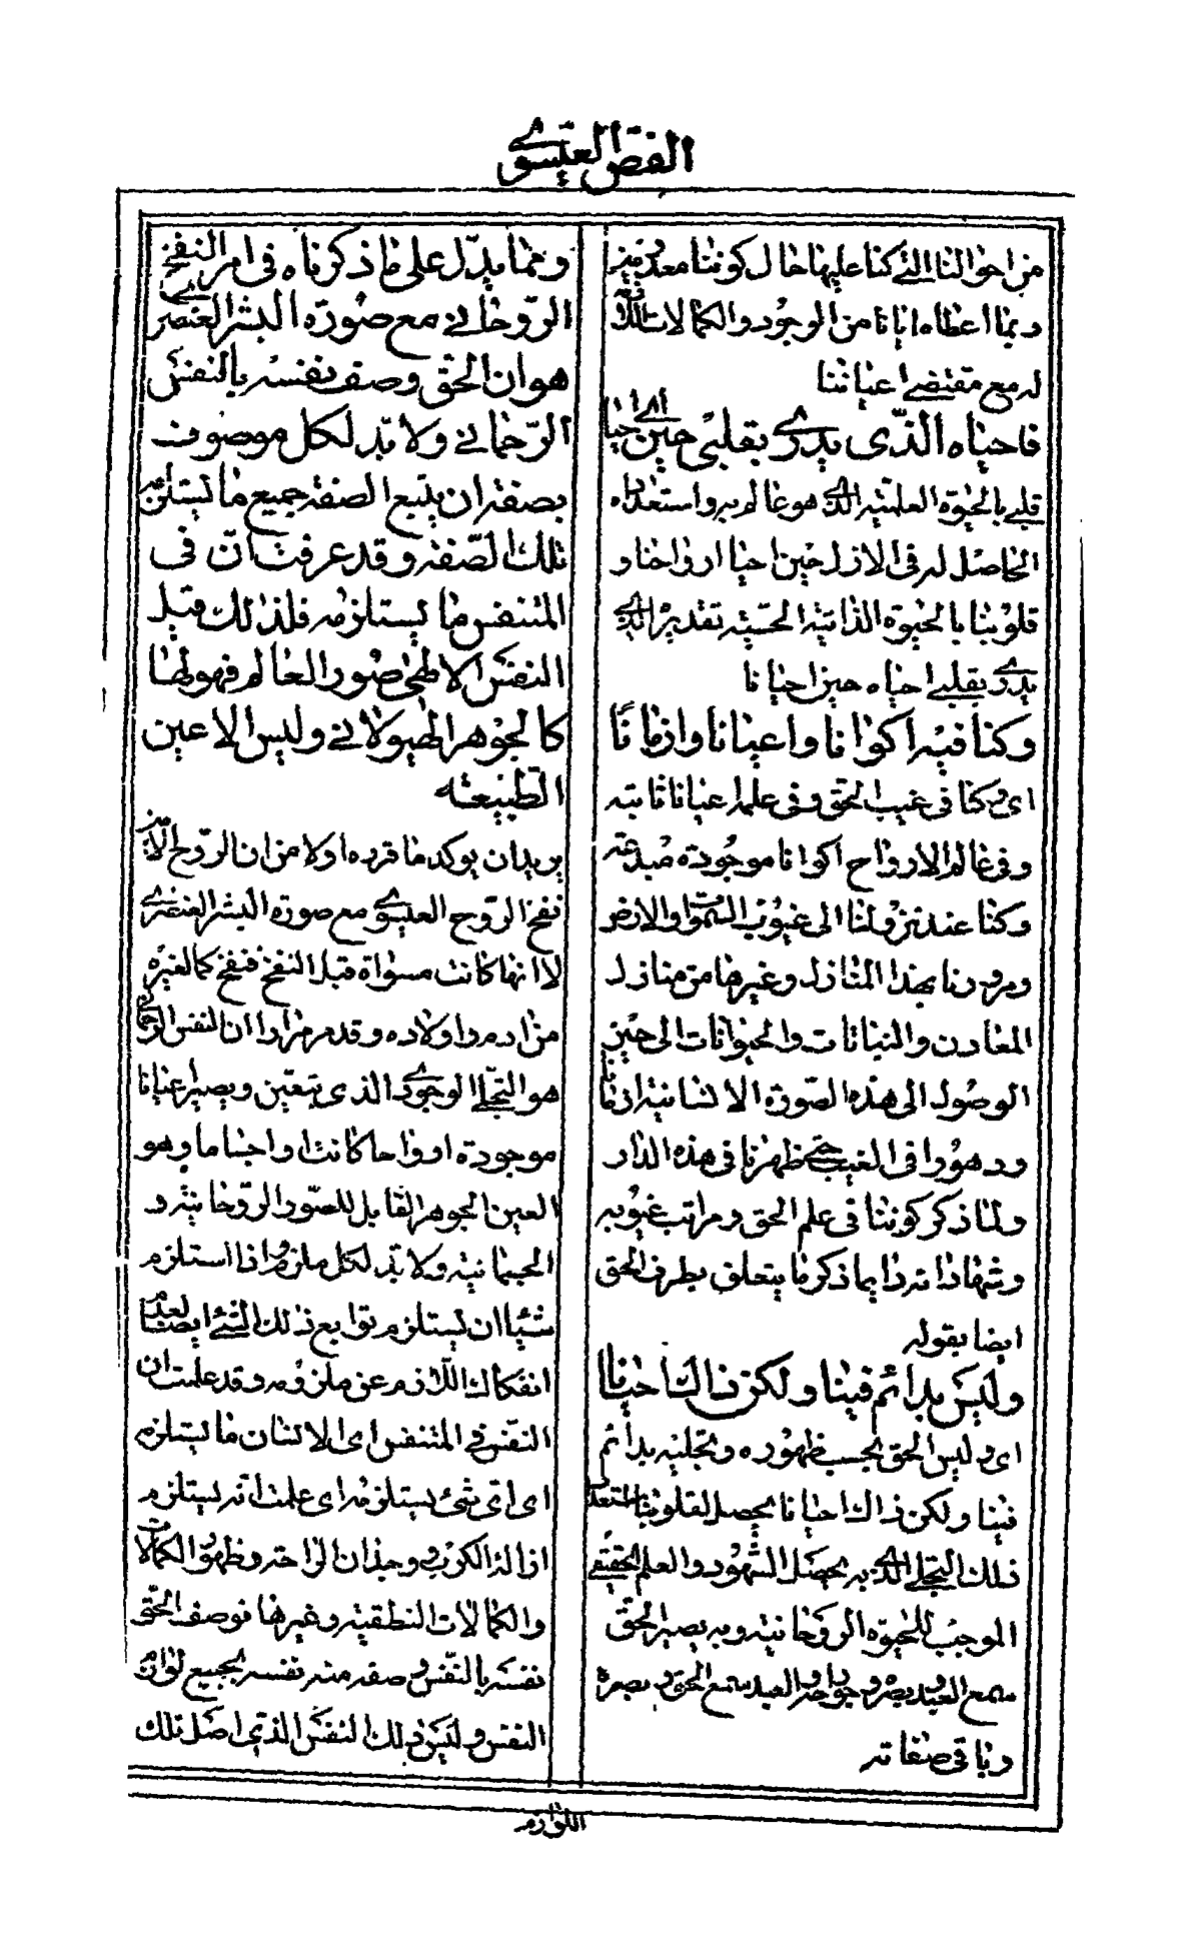 الفصّ العيسوي
من احوالنا التي كنا عليها حال كوننا معدومين
وبما اعطاه ايانا من الوجود والكمالات اللائقة
له مع مقتضى اعياننا
فاحياه الذّي يدري بقلبي حين احيانا
قلبي بالحيوة العلمية الذي هو عالم به واستعداده
الحاصل له في الازل حين احيا ارواحنا و
قلوبنا بالحيوة الذاتية الحسّية تقديره الذي
يدري بقلبي احياه حين احيانا
وكنا فيه اكوانا واعيانا وازمانًا
اي وكنا في غيب الحق وفي علمه اعيانا ثابته
وفي عالم الارواح اكوانا موجودة مبدعة
وكنا عند نزولنا الى غيوب السّموات والارض
ومرورنا بهذا المنازل وغيرها من منازل
المعادن والنباتات والحيوانات الى حين
الوصول الى هذه الصّورة الانسانية ازمانا
ودهورا في الغيب حتى ظهرنا في هذه الدار
ولما ذكر كوننا في علم الحق ومراتب غيوبه
وشهاداته دايما ذكر ما يتعلق بطرف الحق
ايضا بقوله
وليس بدائم فينا ولكن ذاك احيانا
اي وليس الحق بحسب ظهوره وتجليه بدائم
فينا ولكن ذاك احيانا يحصل لقلوبنا المستعدة
ذلك التجلي الذي به يحصل الشهود والعلم الحقيقي
الموجب للحيوة الروحانية وبه يصير الحق
سمع العبد وبصره وجوارحه والعبد سمع الحق وبصره
وباقي صفاته
ومما يدلّ على ما ذكرناه في امر النفخ
الرّوحاني مع صورة البشر العنصري
هو ان الحق وصف نفسه بالنفس
الرّحماني ولا بدّ لكل موصوف
بصفة ان يتبع الصفة جميع ما تستلزمه
تلك الصّفة وقد عرفت انّ في
المتنفس ما يستلزمه فلذلك قبل
النفس الالهي صور العالم فهو لها
كالجوهر الهيولاني وليس الا عين
الطّبيعة
يريد ان يوكد ما قرره اولا من ان الروح الامين
نفخ الرّوح العيسوي مع صورة البشر العنصري
لا انها كانت مسواة قبل النفخ فنفخ كما لغيره
من ادم واولاده وقد مر مرارا ان النفس الرحماني
هو التجلي الوجودي الذي يتعين ويصير اعيانا
موجودة ارواحا كانت او اجساما وهو
العين الجوهر القابل للصّور الروحانية و
الجسمانية ولا بد لكل ملزوم اذا استلزم
شيئا ان يستلزم توابع ذلك الشئ ايضا لعدم
انفكاك اللازم عن ملزومه وقد علمت ان
النفس في المتنفس اي الانسان ما يستلزم
اي اي شئ يستلزمه اي علمت انه يستلزم
ازالة الكرب ووجدان الراحة وظهور الكمالات
والكمالات النطقية وغيرها فوصف الحق
نفسه بالنفس وصفه منه نفسه بجميع لوازم
النفس وليس ذلك النفس الذي اصل تلك
اللوازم